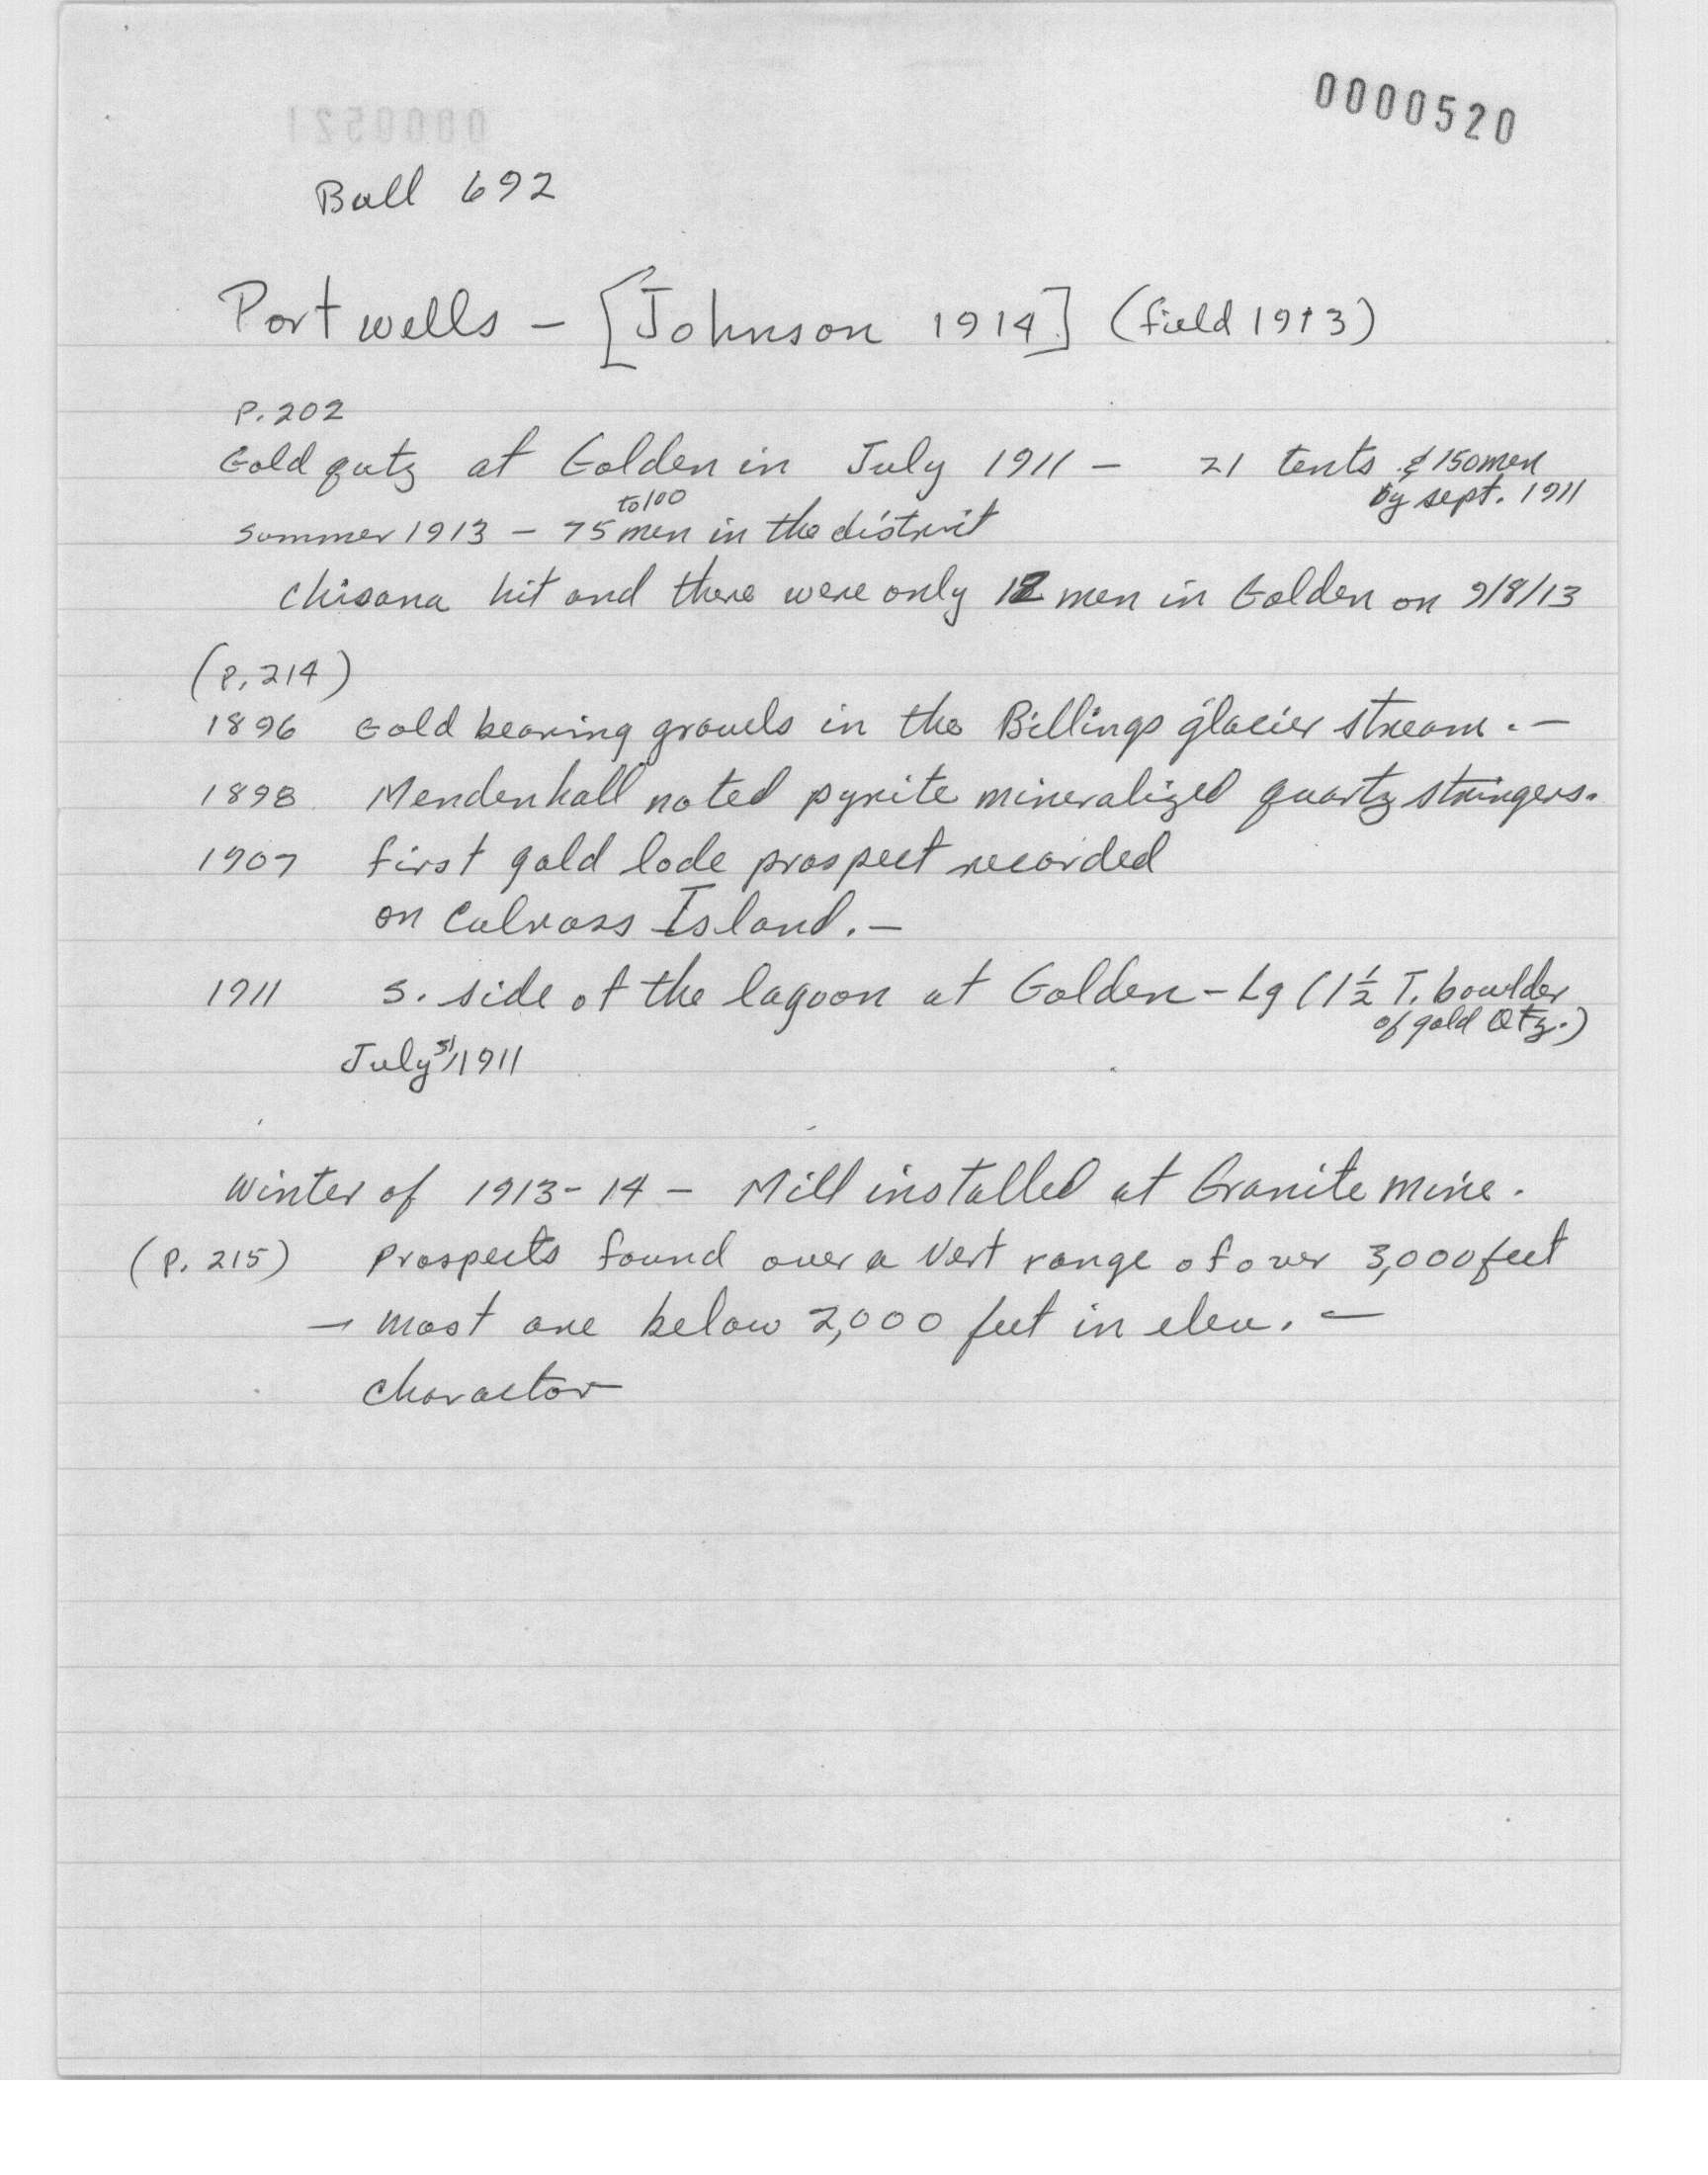 0000520
0000521
Bull 692
Port wells - [Johnson 1914] (field 1913)
P. 202
Gold qutz at Golden in July 1911 - 21 tents & 150 men
by sept. 1911
to 100
summer 1913 - 75 men in the district
Chisana hit and there were only 12 men in Golden on 9/8/13
(P. 214)
1896 Gold bearing gravels in the Billings glacier stream. -
1898 Mendenhall noted pyrite mineralized quartz stringers.
1907 first gold lode prospect recorded
on Culross Island. -
1911 S. side of the lagoon at Golden - Lg (1 1/2 T. boulder
of gold Qtz.)
July 1911
Winter of 1913-14 - Mill installed at Granite mine.
(P. 215) Prospects found over a Vert range of over 3,000 feet
- most are below 2,000 feet in elev. -
Charactor